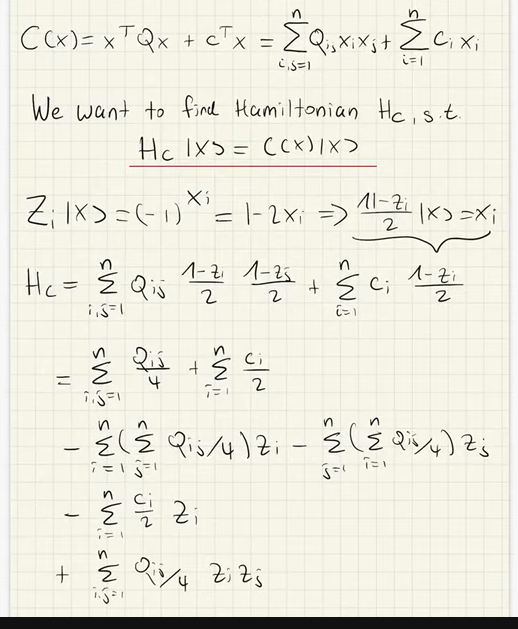 C(x) = xᵀQx + cᵀx = Σ_{i,j=1}^{n} Q_{ij} x_i x_j + Σ_{i=1}^{n} c_i x_i
We want to find Hamiltonian H_C, s.t.
H_C |x> = C(x)|x>
Z_i |x> = (-1)^{x_i} = 1-2x_i => (1-Z_i)/2 |x> = x_i
H_C = Σ_{i,j=1}^{n} Q_{ij} (1-Z_i)/2 (1-Z_j)/2 + Σ_{i=1}^{n} c_i (1-Z_i)/2
= Σ_{i,j=1}^{n} Q_{ij}/4 + Σ_{i=1}^{n} c_i/2
- Σ_{i=1}^{n} (Σ_{j=1}^{n} Q_{ij}/4) Z_i - Σ_{j=1}^{n} (Σ_{i=1}^{n} Q_{ij}/4) Z_j
- Σ_{i=1}^{n} c_i/2 Z_i
+ Σ_{i,j=1}^{n} Q_{ij}/4 Z_i Z_j